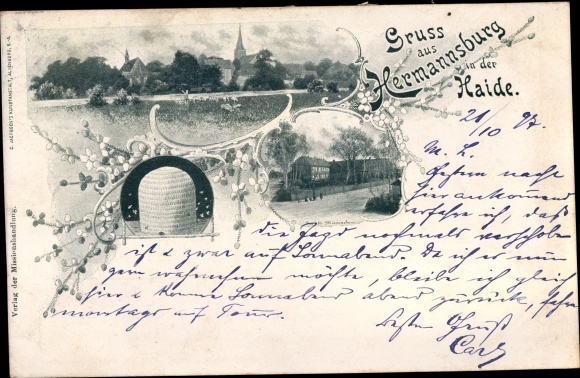 Gruss
aus
Hermannsburg
in der
Haide.
21/10 97.
M. L.
Gestern nacht
hier ankommend
erfahre ich, daß
die Jagd nochmals verschoben
ist & zwar auf Sonnabend. Da ich es nun
gern wahrnehmen möchte, bleibe ich gleich
hier & komme Sonnabend abend zurück, fahre
montags auf Tour.
Besten Gruß
Carl
Verlag der Missionshandlung.